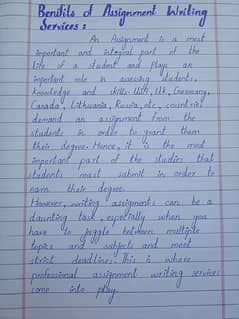 Benifits of Assignment Writing
Services :
An Assignment is a most
important and integral part of the
life of a student and plays an
important role in assessing students,
knowledge and skills. USA, UK, Germany,
Canada, Lithuania, Russia, etc, countries
demand an assignment from the
students in order to grant them
their degree. Hence, it is the most
important part of the studies that
students must submit in order to
earn their degree.
However, writing assigments can be a
daunting task, especially when you
have to juggle between multiple
topics and subjects and meet
strict deadlines. This is where
professional assignment writing services
come into play.